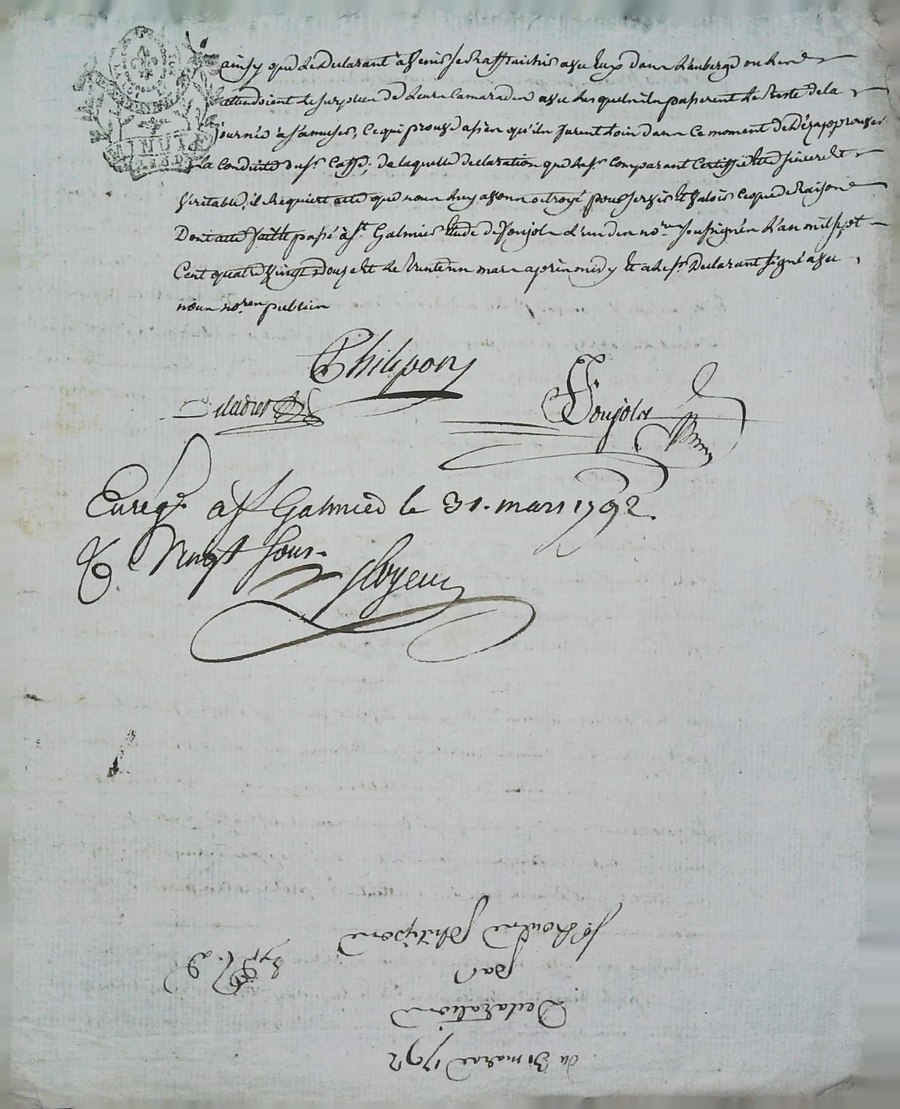 ainsy que le declarant à venir se raffraichir avec eux dans l'auberge ou ils
attendoient le surplus de leurs camarades avec lesquels ils passerent le reste de la
journée à s'amuser, ce qui prouve assés qu'ils furent loin dans ce moment de désapprouver
la conduite du sr. Caffe, de laquelle declaration que le sr. comparant certiffie etre sincere et
veritable, il requiert acte que nous luy avons octroyé pour servir et valoir ce que de raison
Dont acte fait et passé à st. Galmier etude de Poujols l'un des nores. soussignés l'an mil sept
cent quatre vingt douze et le trente un mars après midy et a le sr. Declarant signé avec
nous nores. publics
Philipon
Poujols
Enregé. à st Galmier le 31. mars 1792.
R. vingt sous.
du 31 mars 1792
Declaration
par
sr. Philipon